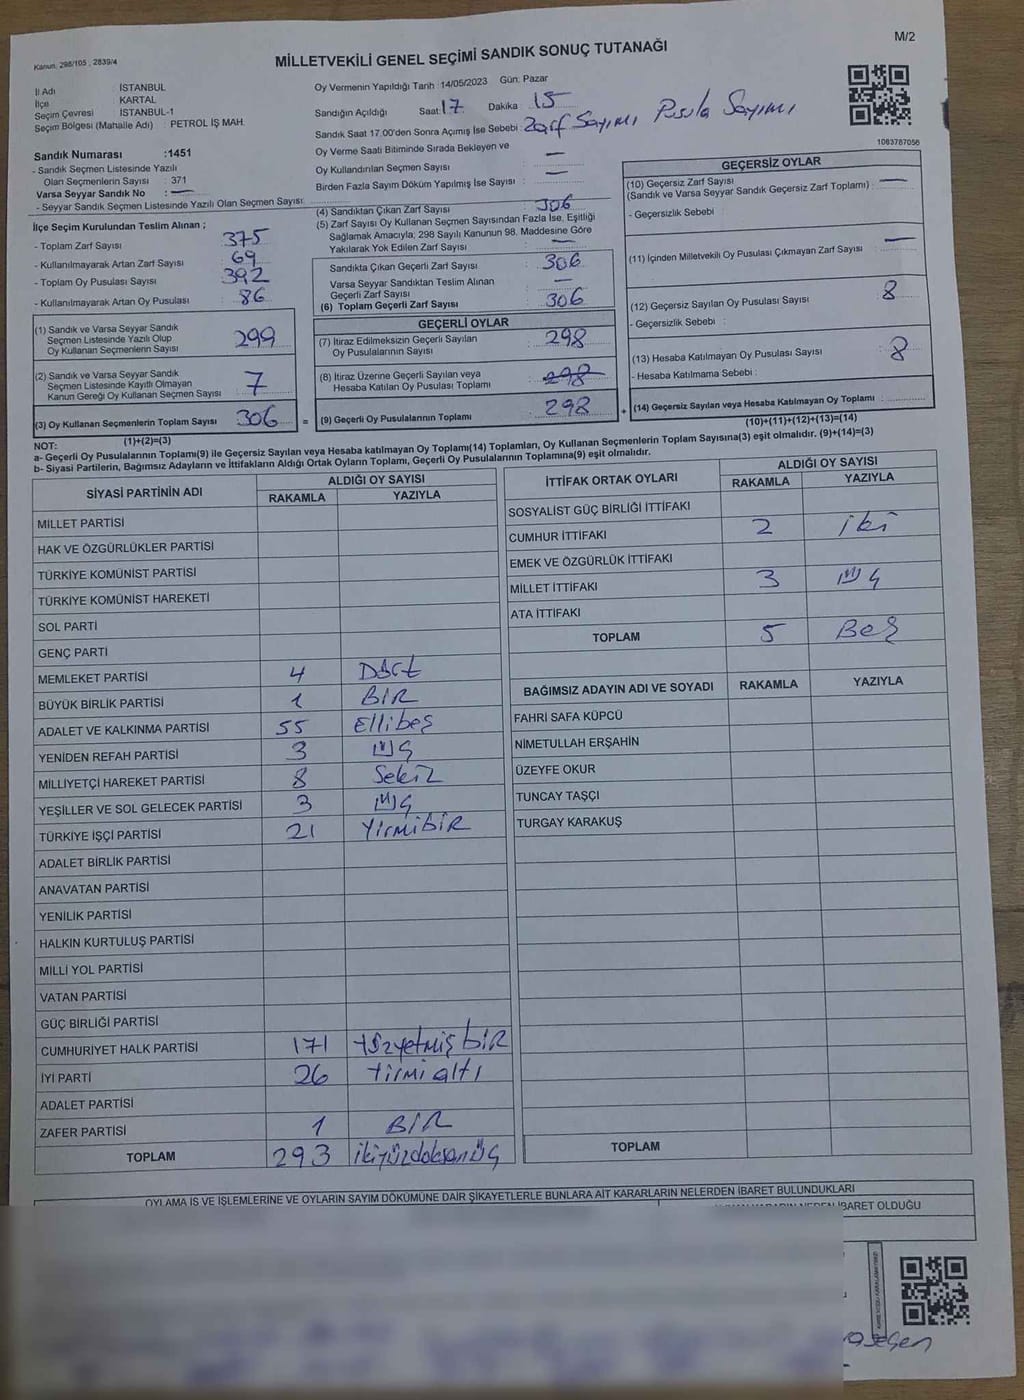 Kanun: 298/105 , 2839/4
MİLLETVEKİLİ GENEL SEÇİMİ SANDIK SONUÇ TUTANAĞI
M/2
İl Adı : İSTANBUL
İlçe : KARTAL
Seçim Çevresi : İSTANBUL-1
Seçim Bölgesi (Mahalle Adı) : PETROL İŞ MAH.
Oy Vermenin Yapıldığı Tarih :14/05/2023 Gün: Pazar
Sandığın Açıldığı Saat: 17 Dakika 15
Sandık Saat 17.00'den Sonra Açımış İse Sebebi: Zarf Sayımı Pusula Sayımı
1083787056
Sandık Numarası :1451
- Sandık Seçmen Listesinde Yazılı
Olan Seçmenlerin Sayısı : 371
Varsa Seyyar Sandık No : —
- Seyyar Sandık Seçmen Listesinde Yazılı Olan Seçmen Sayısı:
Oy Verme Saati Bitiminde Sırada Bekleyen ve —
Oy Kullandırılan Seçmen Sayısı —
Birden Fazla Sayım Döküm Yapılmış İse Sayısı :
İlçe Seçim Kurulundan Teslim Alınan ;
- Toplam Zarf Sayısı 375
- Kullanılmayarak Artan Zarf Sayısı 69
- Toplam Oy Pusulası Sayısı 392
- Kullanılmayarak Artan Oy Pusulası 86
(1) Sandık ve Varsa Seyyar Sandık
Seçmen Listesinde Yazılı Olup
Oy Kullanan Seçmenlerin Sayısı 299
(2) Sandık ve Varsa Seyyar Sandık
Seçmen Listesinde Kayıtlı Olmayan
Kanun Gereği Oy Kullanan Seçmen Sayısı 7
(3) Oy Kullanan Seçmenlerin Toplam Sayısı 306 =
(1)+(2)=(3)
(4) Sandıktan Çıkan Zarf Sayısı 306
(5) Zarf Sayısı Oy Kullanan Seçmen Sayısından Fazla İse, Eşitliği
Sağlamak Amacıyla; 298 Sayılı Kanunun 98. Maddesine Göre
Yakılarak Yok Edilen Zarf Sayısı —
Sandıkta Çıkan Geçerli Zarf Sayısı 306
Varsa Seyyar Sandıktan Teslim Alınan
Geçerli Zarf Sayısı —
(6) Toplam Geçerli Zarf Sayısı 306
GEÇERLİ OYLAR
(7) İtiraz Edilmeksizin Geçerli Sayılan
Oy Pusulalarının Sayısı 298
(8) İtiraz Üzerine Geçerli Sayılan veya
Hesaba Katılan Oy Pusulası Toplamı 298
(9) Geçerli Oy Pusulalarının Toplamı 298 +
GEÇERSİZ OYLAR
(10) Geçersiz Zarf Sayısı
(Sandık ve Varsa Seyyar Sandık Geçersiz Zarf Toplamı) : —
- Geçersizlik Sebebi :
(11) İçinden Milletvekili Oy Pusulası Çıkmayan Zarf Sayısı —
(12) Geçersiz Sayılan Oy Pusulası Sayısı 8
- Geçersizlik Sebebi :
(13) Hesaba Katılmayan Oy Pusulası Sayısı 8
- Hesaba Katılmama Sebebi :
(14) Geçersiz Sayılan veya Hesaba Katılmayan Oy Toplamı :
(10)+(11)+(12)+(13)=(14)
NOT:
a- Geçerli Oy Pusulalarının Toplamı(9) ile Geçersiz Sayılan veya Hesaba katılmayan Oy Toplamı(14) Toplamları, Oy Kullanan Seçmenlerin Toplam Sayısına(3) eşit olmalıdır. (9)+(14)=(3)
b- Siyasi Partilerin, Bağımsız Adayların ve İttifakların Aldığı Ortak Oyların Toplamı, Geçerli Oy Pusulalarının Toplamına(9) eşit olmalıdır.
SİYASİ PARTİNİN ADI ALDIĞI OY SAYISI
RAKAMLA YAZIYLA
MİLLET PARTİSİ
HAK VE ÖZGÜRLÜKLER PARTİSİ
TÜRKİYE KOMÜNİST PARTİSİ
TÜRKİYE KOMÜNİST HAREKETİ
SOL PARTİ
GENÇ PARTİ
MEMLEKET PARTİSİ 4 Dört
BÜYÜK BİRLİK PARTİSİ 1 BİR
ADALET VE KALKINMA PARTİSİ 55 Ellibeş
YENİDEN REFAH PARTİSİ 3 üç
MİLLİYETÇİ HAREKET PARTİSİ 8 Sekiz
YEŞİLLER VE SOL GELECEK PARTİSİ 3 üç
TÜRKİYE İŞÇİ PARTİSİ 21 YirmibiR
ADALET BİRLİK PARTİSİ
ANAVATAN PARTİSİ
YENİLİK PARTİSİ
HALKIN KURTULUŞ PARTİSİ
MİLLİ YOL PARTİSİ
VATAN PARTİSİ
GÜÇ BİRLİĞİ PARTİSİ
CUMHURİYET HALK PARTİSİ 171 Yüzyetmiş biR
İYİ PARTİ 26 Yirmi altı
ADALET PARTİSİ
ZAFER PARTİSİ 1 BİR
TOPLAM 293 ikiyüzdoksanüç
İTTİFAK ORTAK OYLARI ALDIĞI OY SAYISI
RAKAMLA YAZIYLA
SOSYALİST GÜÇ BİRLİĞİ İTTİFAKI
CUMHUR İTTİFAKI 2 iki
EMEK VE ÖZGÜRLÜK İTTİFAKI
MİLLET İTTİFAKI 3 üç
ATA İTTİFAKI
TOPLAM 5 Beş
BAĞIMSIZ ADAYIN ADI VE SOYADI RAKAMLA YAZIYLA
FAHRİ SAFA KÜPCÜ
NİMETULLAH ERŞAHİN
ÜZEYFE OKUR
TUNCAY TAŞÇI
TURGAY KARAKUŞ
TOPLAM
OYLAMA İŞ VE İŞLEMLERİNE VE OYLARIN SAYIM DÖKÜMÜNE DAİR ŞİKAYETLERLE BUNLARA AİT KARARLARIN NELERDEN İBARET BULUNDUKLARI
İBARET OLDUĞU